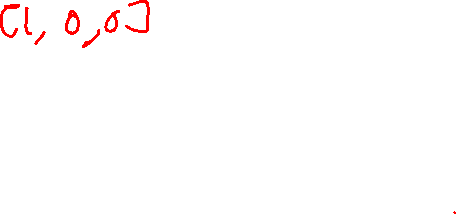 [1, 0,0]